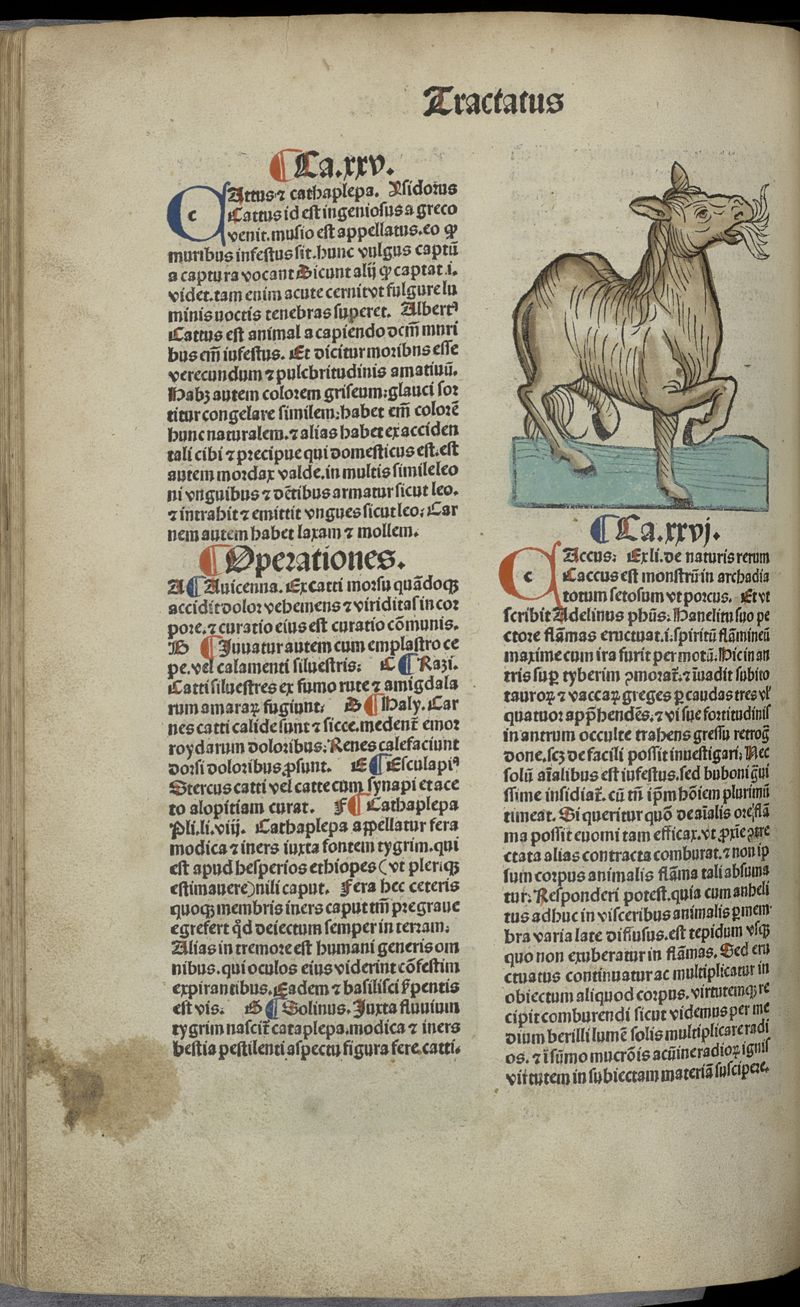 Tractatus
¶ Ca.xxv.
CAttus ⁊ cathaplepa. Ysidorus
Cattus id est ingeniosus a greco
venit. musio est appellatus. eo ꝙ
muribus infestus sit. hunc vulgus captū
a captura vocant Dicunt alij ꝙ captat .i.
videt. tam enim acute cernit vt fulgure lu
minis noctis tenebras superet. Albertꝰ
Cattus est animal a capiendo dcm̄ muri
bus em̄ infestus. Et dicitur moribus esse
verecundum ⁊ pulchritudinis amatiuū.
Habꝫ autem colorem griseum: glauci sor
titur congelare similem: habet em̄ colorē
hunc naturalem. ⁊ alias habet ex acciden
tali cibi ⁊ precipue qui domesticus est. est
autem mordax valde. in multis simile leo
ni vnguibus ⁊ dētibus armatur sicut leo.
⁊ intrahit ⁊ emittit vngues sicut leo: Car
nem autem habet laxam ⁊ mollem.
¶ Operationes.
A ¶ Auicenna. Ex catti morsu quādoqꝫ
accidit dolor vehemens ⁊ viriditas in cor
pore. ⁊ curatio eius est curatio cōmunis.
B ¶ Juuatur autem cum emplastro ce
pe. vel calamenti siluestris: C ¶ Razi.
Catti siluestres ex fumo rute ⁊ amigdala
rum amararꝝ fugiunt: D ¶ Haly. Car
nes catti calide sunt ⁊ sicce. medent̄ emor
roydarum doloribus: Renes calefaciunt
dorsi doloribus ꝓsunt. E ¶ Esculapiꝰ
Stercus catti vel catte cum synapi et ace
to alopitiam curat. F ¶ Cathaplepa
Pli. li. viij. Cathaplepa appellatur fera
modica ⁊ iners iuxta fontem tygrim. qui
est apud hesperios ethiopes (vt pleriqꝫ
estimauere) nili caput. Fera hec ceteris
quoqꝫ membris iners caput tm̄ pregraue
egre fert qd̄ deiectum semper in terram:
Alias in tremore est humani generis om
nibus. qui oculos eius viderint cōfestim
expirantibus. Eadem ⁊ basilisci ẜpentis
est vis: G ¶ Solinus. Juxta fluuium
tygrim nascit̄ cataplepa. modica ⁊ iners
bestia pestilenti aspectu figura fere catti.
¶ Ca.xxvj.
CAccus: Ex li. de naturis rerum
Caccus est monstrū in archadia
totum setosum vt porcus. Et vt
scribit Adelinus phūs: Hanelitu suo pe
ctore flāmas eructuat .i. spiritū flāmineū
maxime cum ira furit per motū: Hic in an
tris suꝑ tyberim ꝯmorat̄. ⁊ īuadit subito
taurorꝝ ⁊ vaccarꝝ greges ꝑ caudas tres vl̓
quatuor app̄hendēs. ⁊ vi sue fortitudinis
in antrum occulte trahens gressu retrog̊
done. scꝫ de facili possit inuestigari: Nec
solū aīalibus est infestus. sed huboni gui
ssime insidiat̄. cū tn̄ ip̄m hōiem plurimū
timeat. Si queritur quō de aīalis ore flā
ma possit euomi tam efficax. vt
ctata alias contracta comburat. ⁊ non ip
sum corpus animalis flāma tali absuma
tur: Responderi potest. quia cum anheli
tus adhuc in visceribus animalis ꝑ mem
bra varia late diffusus. est tepidum vsqꝫ
quo non exuberatur in flāmas, Sed eru
ctuatus continuatur ac multiplicatur in
obiectum aliquod corpus. virtutemqꝫ re
cipit comburendi sicut videmus per me
dium berilli lumē solis multiplicare radi
os. ⁊ ī sūmo mucrōis acūine radiorꝝ ignis
virtutem in subiectam materiā suscipere.